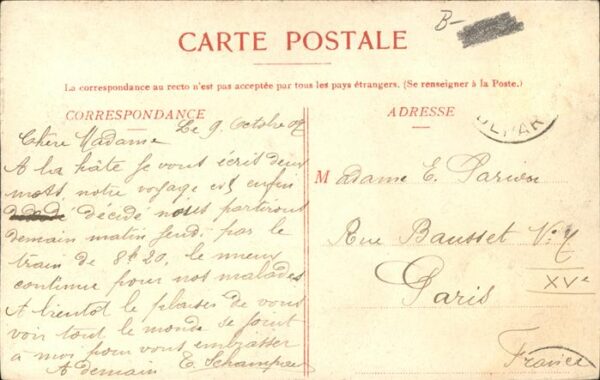 B-
CARTE POSTALE
La correspondance au recto n'est pas acceptée par tous les pays étrangers. (Se renseigner à la Poste.)
CORRESPONDANCE
Le 9 Octobre 07
Chère Madame
A la hâte je vous écrit deux
mots, notre voyage est enfin
décidé nous partirons
demain matin jeudi par le
train de 8h 20, le mieux
continue pour nos malades
A bientot le plaisir de vous
voir tout le monde se joint
à moi pour vous embrasser
A demain E.
ADRESSE
Madame E.
Rue Bausset No 7
Paris
XVe
France